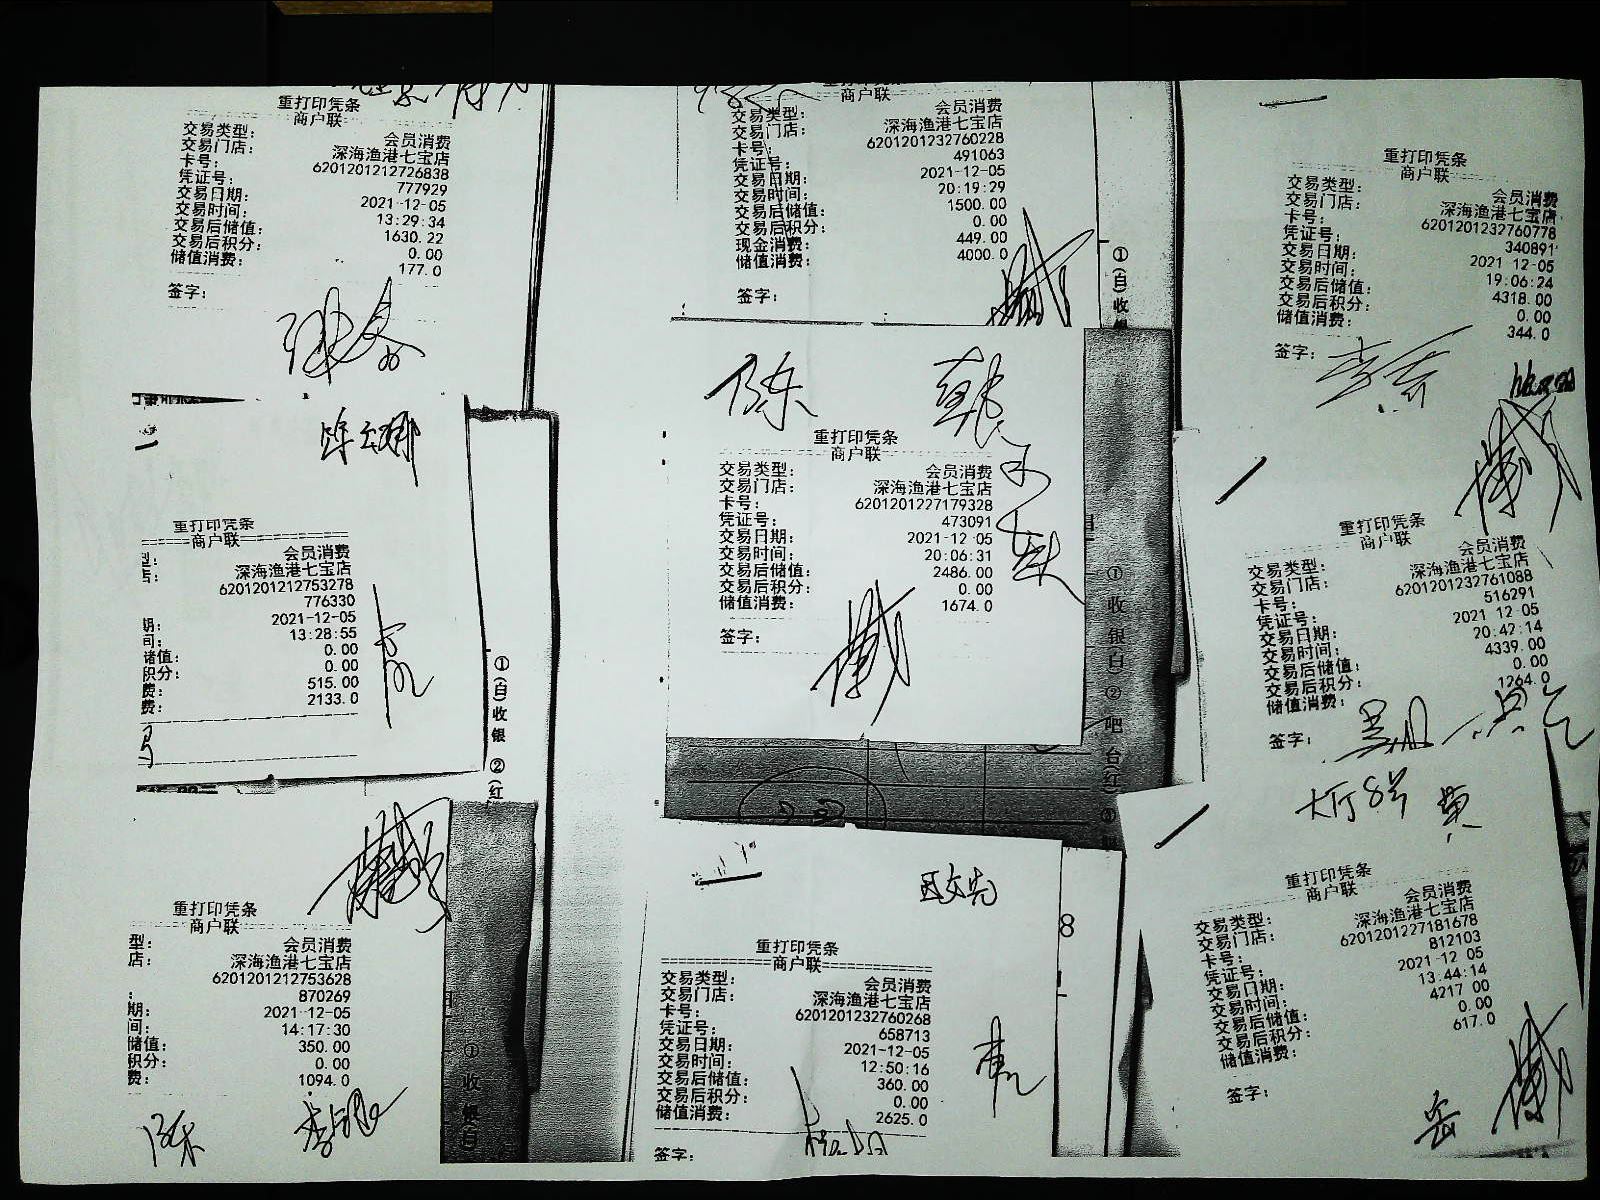 重打印凭条
商户联
交易类型: 会员消费
交易门店: 深海渔港七宝店
卡号: 6201201212726838
凭证号: 777929
交易日期: 2021-12-05
交易时间: 13:29:34
交易后储值: 1630.22
交易后积分: 0.00
储值消费: 177.0
签字:
重打印凭条
======商户联======
型: 会员消费
店: 深海渔港七宝店
6201201212753278
776330
期: 2021-12-05
间: 13:28:55
储值: 0.00
积分: 0.00
费: 515.00
费: 2133.0
重打印凭条
商户联
型: 会员消费
店: 深海渔港七宝店
6201201212753628
: 870269
期: 2021-12-05
间: 14:17:30
储值: 350.00
积分: 0.00
费: 1094.0
陈
①(白)收银 ②(红
①收银(白
商户联
交易类型: 会员消费
交易门店: 深海渔港七宝店
卡号: 6201201232760228
凭证号: 491063
交易日期: 2021-12-05
交易时间: 20:19:29
交易后储值: 1500.00
交易后积分: 0.00
现金消费: 449.00
储值消费: 4000.0
签字:
①(白)收银
陈
重打印凭条
商户联
交易类型: 会员消费
交易门店: 深海渔港七宝店
卡号: 6201201227179328
凭证号: 473091
交易日期: 2021-12-05
交易时间: 20:06:31
交易后储值: 2486.00
交易后积分: 0.00
储值消费: 1674.0
签字:
①收银(白)②吧台(红)③
8
重打印凭条
============商户联============
交易类型: 会员消费
交易门店: 深海渔港七宝店
卡号: 6201201232760268
凭证号: 658713
交易日期: 2021-12-05
交易时间: 12:50:16
交易后储值: 360.00
交易后积分: 0.00
储值消费: 2625.0
签字:
重打印凭条
商户联
交易类型: 会员消费
交易门店: 深海渔港七宝店
卡号: 6201201232760778
凭证号: 340891
交易日期: 2021-12-05
交易时间: 19:06:24
交易后储值: 4318.00
交易后积分: 0.00
储值消费: 344.0
签字:
重打印凭条
商户联
交易类型: 会员消费
交易门店: 深海渔港七宝店
卡号: 6201201232761088
凭证号: 516291
交易日期: 2021-12-05
交易时间: 20:42:14
交易后储值: 4339.00
交易后积分: 0.00
储值消费: 1264.0
签字:
大厅8号 黄
重打印凭条
商户联
交易类型: 会员消费
交易门店: 深海渔港七宝店
卡号: 6201201227181678
凭证号: 812103
交易日期: 2021-12-05
交易时间: 13:44:14
交易后储值: 4217.00
交易后积分: 0.00
储值消费: 617.0
签字:
岳